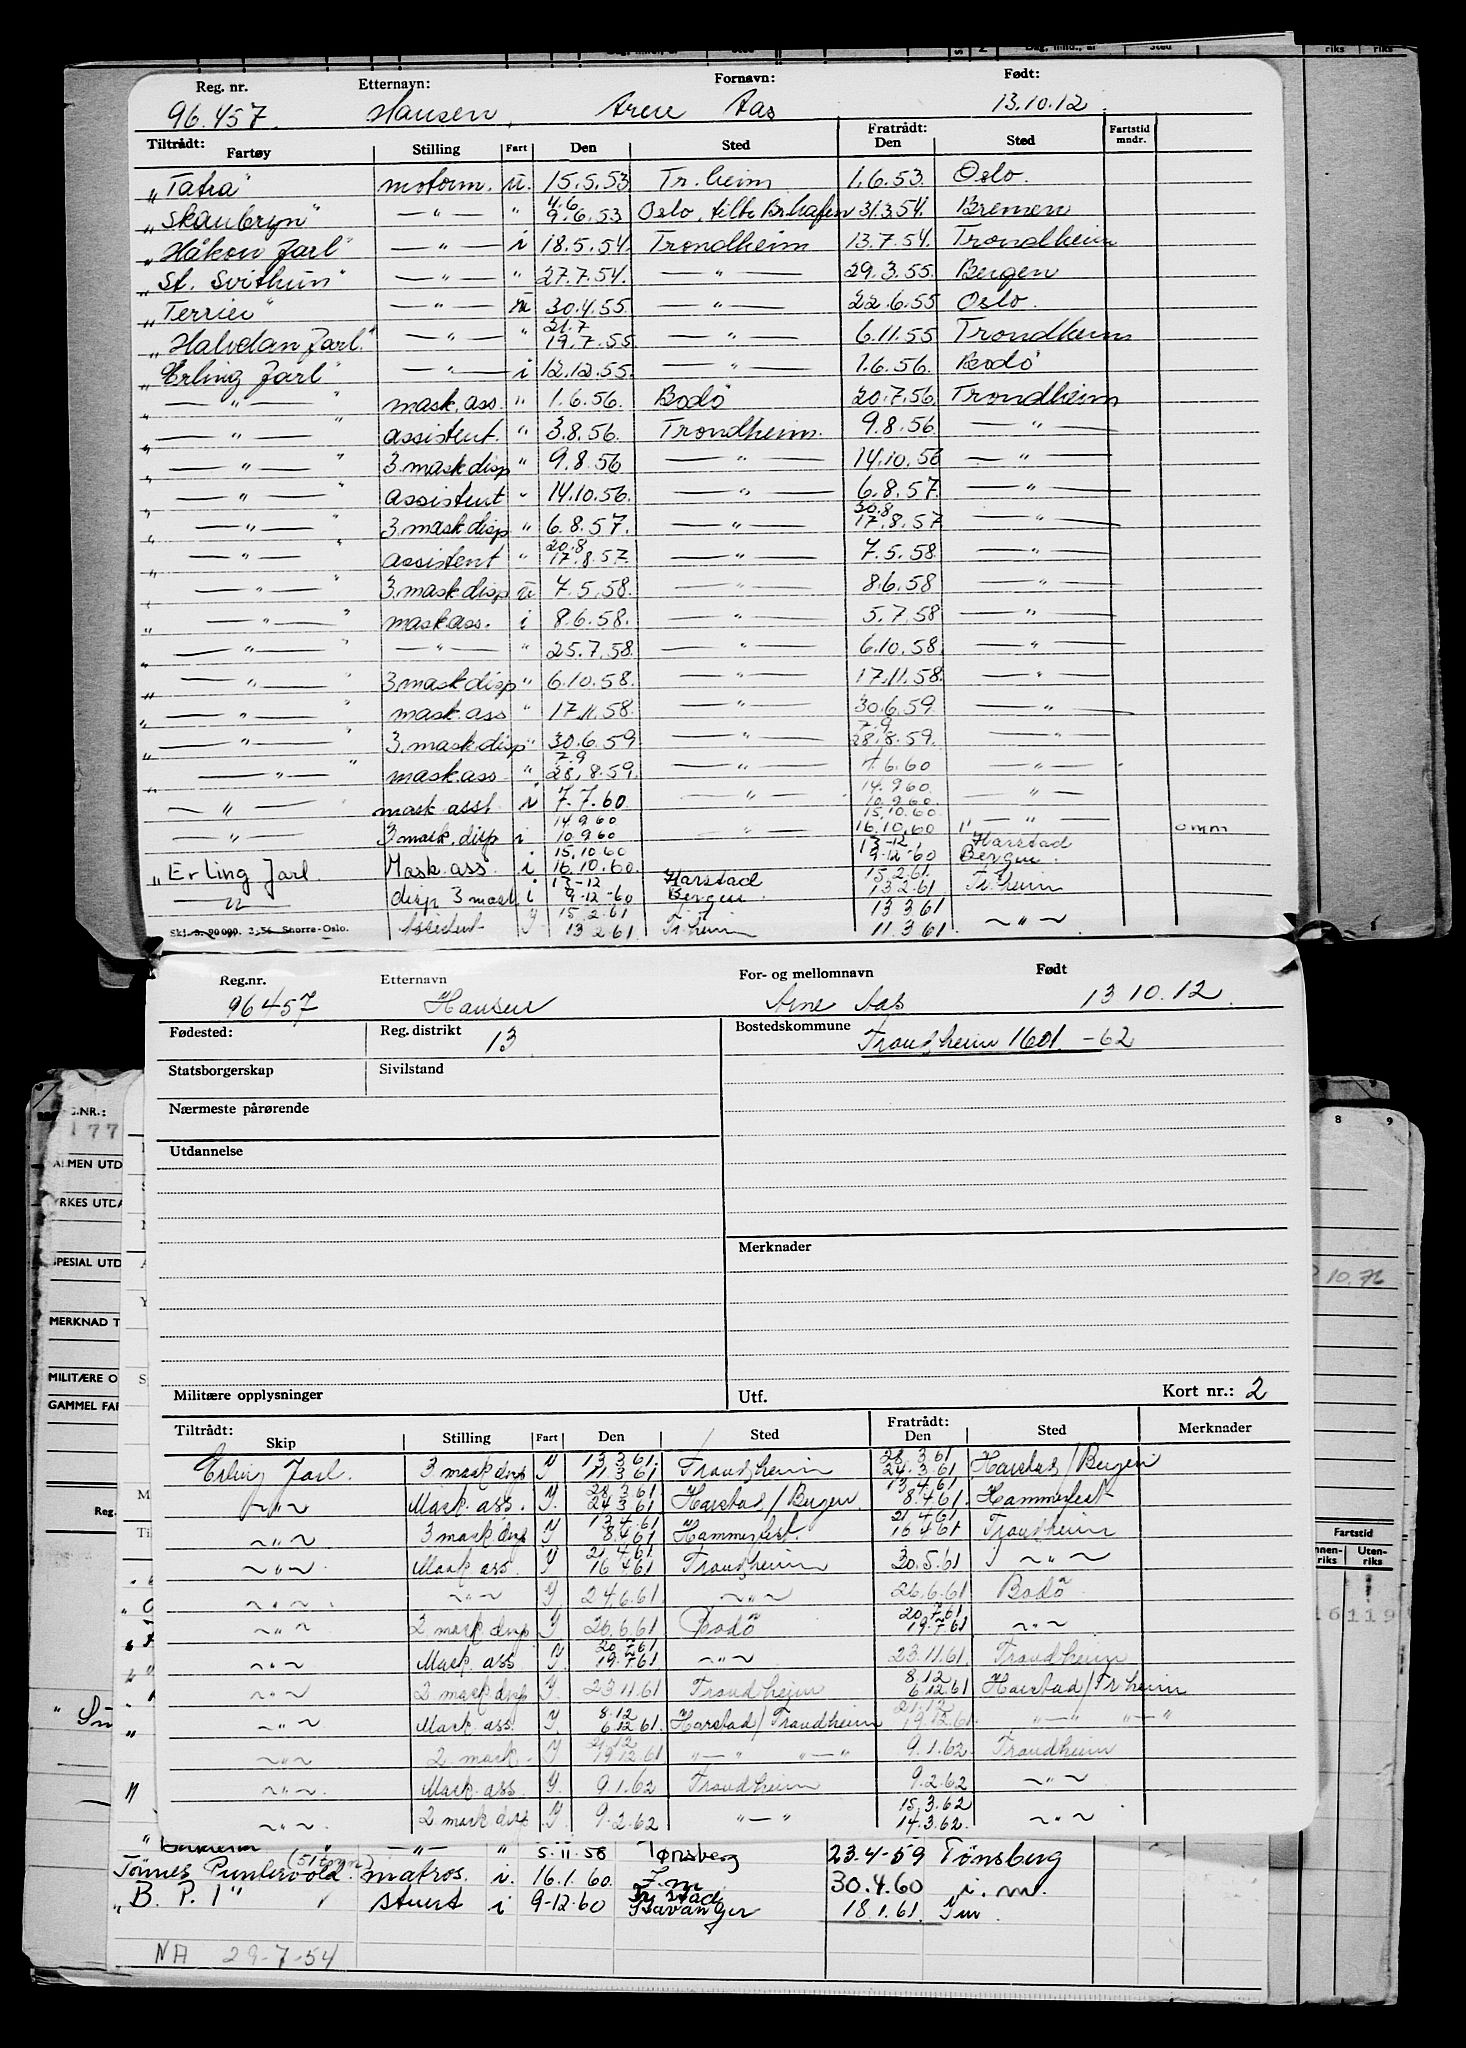 Reg. nr. Etternavn: Fornavn: Født:
96.457. Hansen, Arne Aas 13.10.12
Tiltrådt: Fratrådt: Fartstid
Fartøy Stilling Fart Den Sted Den Sted mndr.
"Tatra" motorm. u. 15.5.53 Tr.heim 1.6.53 Oslo.
"Skaubryn" —"— " 4.6 9.6.53 Oslo, tilb Br.hafen 31.3.54. Bremen
"Håkon Jarl" —"— i 18.5.54. Trondheim 13.7.54. Trondheim
"St. Svithun" —"— " 27.7.54. —"— 29.3.55. Bergen
"Terrier" —"— u 30.4.55 —"— 22.6.55 Oslo.
"Halvdan Jarl." —"— " 21.7 19.7.55 —"— 6.11.55 Trondheim
"Erling Jarl" —"— i 12.12.55. —"— 1.6.56. Bodö
" —"— " mask.ass. " 1.6.56. Bodö 20.7.56. Trondheim
" —"— " assistent. " 3.8.56. Trondheim. 9.8.56. —"—
" —"— " 3.mask disp " 9.8.56 —"— 14.10.56 —"—
" —"— " assistent " 14.10.56. —"— 6.8.57. —"—
" —"— " 3.mask disp " 6.8.57. —"— 20.8 17.8.57 —"—
" —"— " assistent " 20.8 17.8.57. —"— 7.5.58. —"—
" —"— " 3.mask disp u 7.5.58. —"— 8.6.58 —"—
" —"— " mask ass. i 8.6.58. —"— 5.7.58 —"—
" —"— " —"— " 25.7.58. —"— 6.10.58. —"—
" —"— " 3 mask disp " 6.10.58. —"— 17.11.58. —"—
" —"— " mask.ass " 17.11.58. —"— 30.6.59. —"—
" —"— " 3.mask disp " 30.6.59 —"— 7.9 28.8.59. —"—
" —"— " mask.ass. " 7.9 28.8.59. —"— 7.6.60 —"—
—"— mask asst. i 7.7.60 —"— 14.9.60 10.9.60 —"—
—"— 3 mask. disp i 14.9.60 10.9.60 —"— 15.10.60. 16.10.60 " — " — omm
"Erling Jarl. Mask.ass. i 15.10.60 16.10.60. 13-12. 9-12-60 Harstad Bergen.
—"— disp 3 mask i 13-12 9-12-60 Harstad Bergen. 15.2.61. 13.2.61 Tr.heim
Skj. S. 90 000. 3.56 Snorre-Oslo. Assistent Y 15.2.61 13.2.61. Tr.heim 13 3 61 11.3.61. ~"~
Reg.nr. Etternavn For- og mellomnavn Født
96457 Hansen Arne Aas 13 10.12.
Fødested: Reg. distrikt 13 Bostedskommune
Trondheim 1601 -62
Statsborgerskap Sivilstand
Nærmeste pårørende
Utdannelse
Merknader
Militære opplysninger Utf. Kort nr.: 2
Tiltrådt: Fratrådt:
Skip Stilling Fart Den Sted Den Sted Merknader
Erling Jarl. 3 mask disp Y 13 3 61. 11 3 61 Trondheim 28.3 61 24.3.61 Harstad / Bergen
~"~ Mask. ass. Y. 28 3 61 24 3 61 Harstad / Bergen. 13.4.61 8.4.61. Hammerfest
~"~ 3 mask. disp Y 13.4.61 8.4 61 Hammerfest. 21 4 61 16 4 61 Trondheim
~"~ Mask ass. Y 21 4 61 16 4 61 Trondheim 30.5.61 ~"~
~"~ ~"~ Y. 24.6.61. ~"~ 26.6.61 Bodö
~"~ 2 mask disp Y 26.6.61 Bodö 20.7.61 19.7.61 ~"~
~"~ Mask. ass Y. 20 7 61 19.7.61 ~"~ 23.11.61. Trondheim
~"~ 2 mask disp Y. 23 11.61 Trondheim 8.12 6.12.61 Harstad / Tr heim
~"~ Mask. ass. Y. 8.12 6.12 61. Harstad / Trondheim 21.12. 19.12.61. "—" "—"
~"~ 2 mask. Y 21.12 19 12.61 "—" "—" 9.1.62 Trondheim
~"~ Mask. ass. Y. 9.1.62 Trondheim 9.2.62 ~"~
~"~ 2 mask disp Y. 9.2.62 "—" 15.3.62 14.3.62. ~"~
—"— " 5.11.58 Tønsberg 23.4-59 Tønsberg
Tönnes (51 tonn) matros. i. 16.1.60. I.m 30.4.60 i.m.
"B. P. 1" stuert i 9-12.60 Stavanger 18.1.61. Im
NA 29-7-54
G.NR.:
177
ALMEN UTD
YRKES UTDA
SPESIAL UTD
MERKNAD T
MILITÆRE O
GAMMEL FAR
Reg.
8 9
10.76
Fartstid
nnen-riks Uten-riks
riks riks